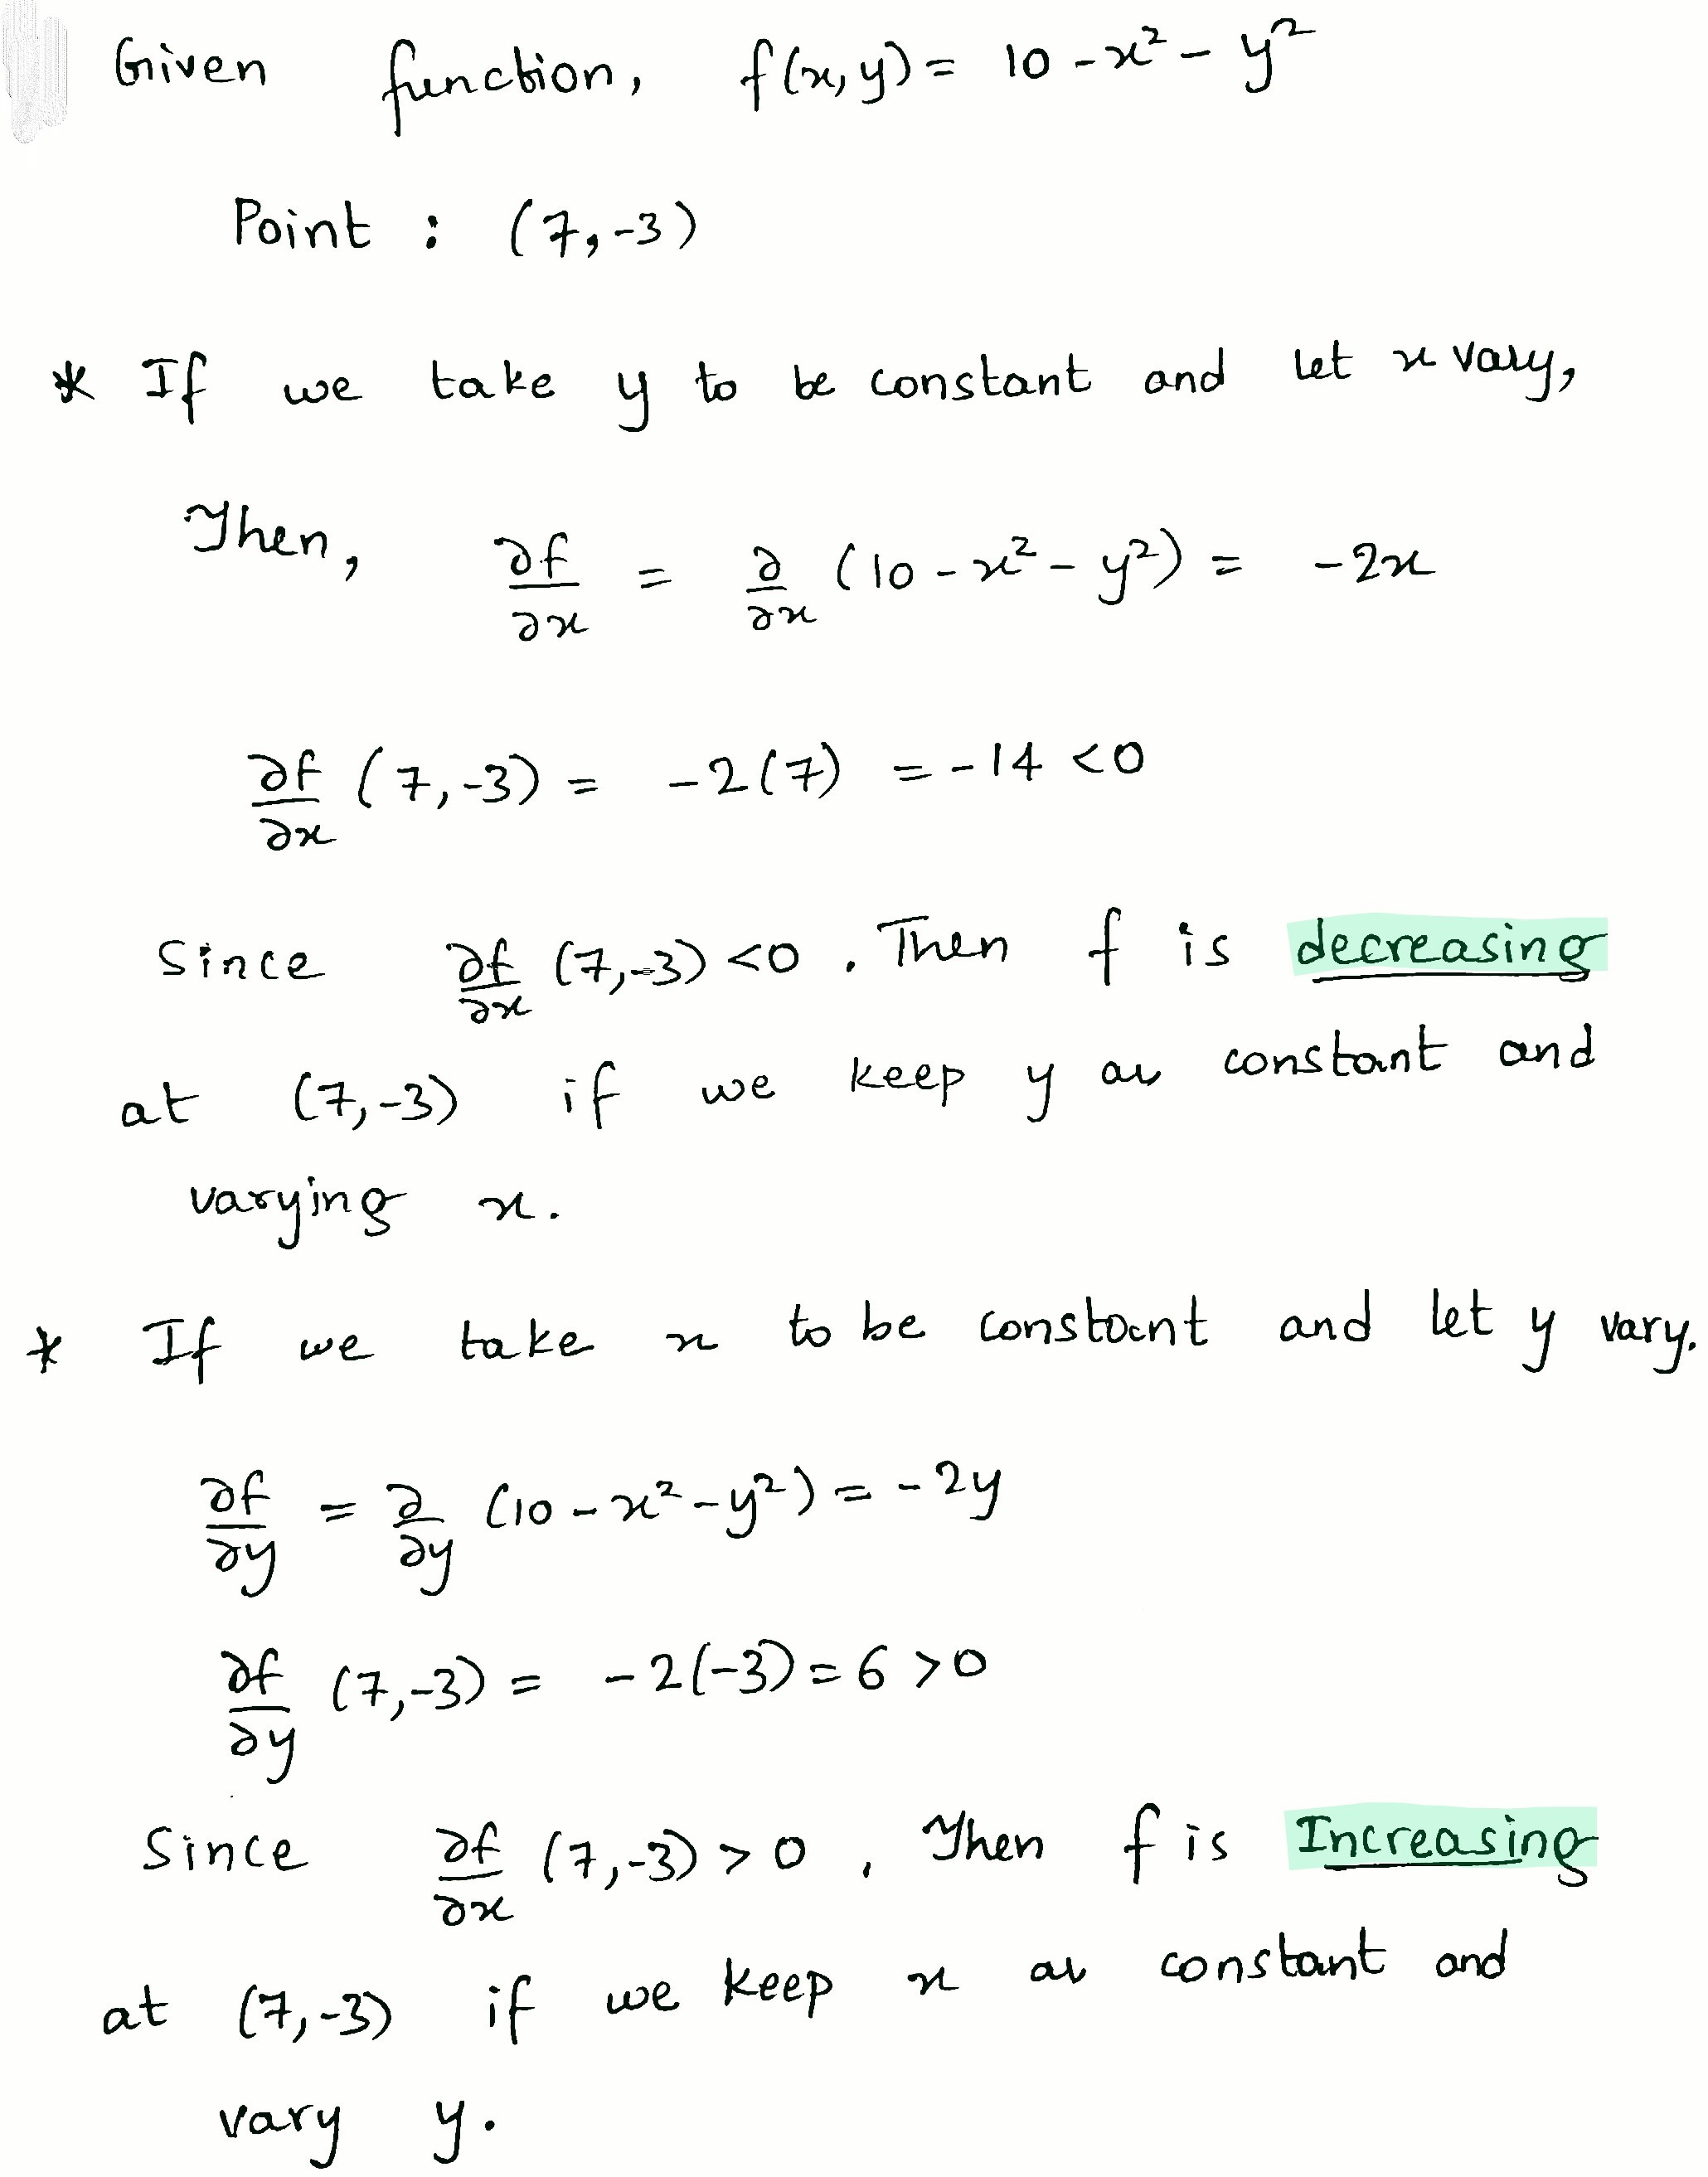 Given function, f(x,y) = 10 - x² - y²
Point : (7,-3)
* If we take y to be constant and let x vary,
Then, ∂f/∂x = ∂/∂x (10 - x² - y²) = -2x
∂f/∂x (7,-3) = -2(7) = -14 <0
Since ∂f/∂x (7,-3) <0 . Then f is decreasing
at (7,-3) if we keep y as constant and
varying x.
* If we take x to be constant and let y vary.
∂f/∂y = ∂/∂y (10 - x² - y²) = -2y
∂f/∂y (7,-3) = -2(-3) = 6 >0
Since ∂f/∂x (7,-3) > 0 , Then f is Increasing
at (7,-3) if we keep x as constant and
vary y.